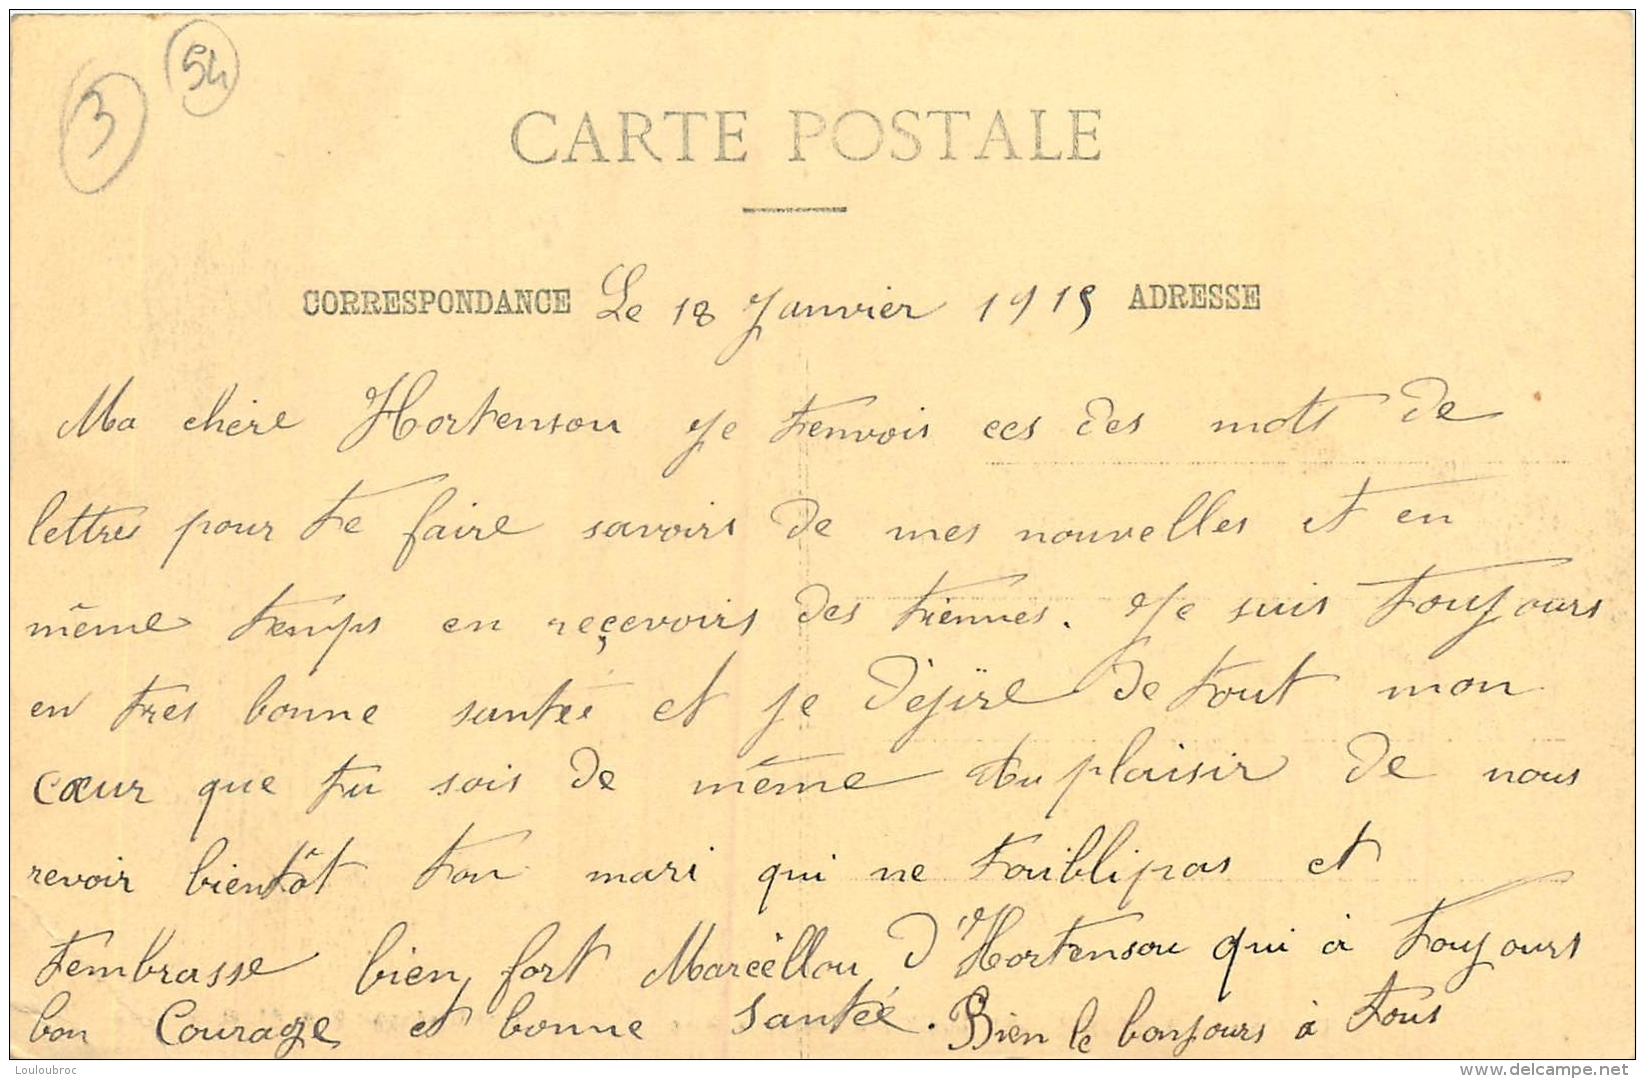 3
54
CARTE POSTALE
CORRESPONDANCE Le 18 Janvier 1915 ADRESSE
Ma chère Hortensou je tenvois ces des mots de
lettres pour te faire savoirs de mes nouvelles et en
même temps en reçevoirs des tiennes. Je suis toujours
en tres bonne santée et je déjire de tout mon
cœur que tu sois de même du plaisir de nous
revoir bientôt ton mari qui ne toublipas et
tembrasse bien fort Marcéllou d'Hortensou qui à toujours
bon Courage et bonne santée. Bien le bonjours à tous
Louloubroc
www.delcampe.net